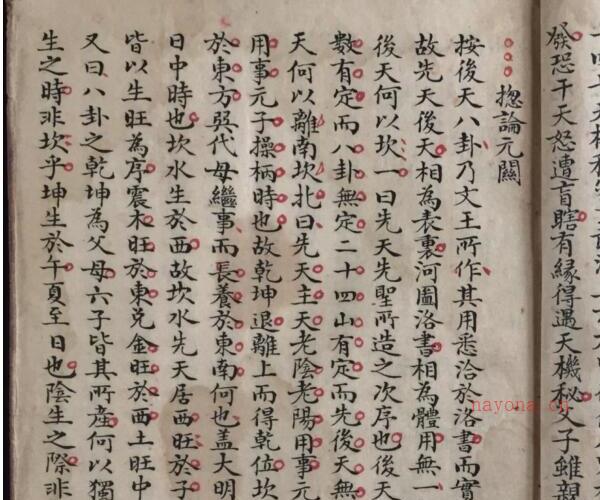 發恐干天怒遭盲瞎有緣得遇天機秘父子雖親
揔論元關
按後天八卦乃文王所作其用悉洽於洛書而實
故先天後天相為表裏河圖洛書相為體用無一
後天何以坎一曰先天先聖所造之次序也後天
數有定而八卦無定二十四山有定而先後天無
天何以離南坎北曰先天主天老陰老陽用事元
用事元子操柄時也故乾坤退離上而得乾位坎
於東方巽代母繼事而長養於東南何也盖大明
日中時也坎水生於西故坎水先天居西旺於子
皆以生旺為序震木旺於東兌金旺於西土旺中
又曰八卦之乾坤為父母六子皆其所產何以獨
生之時非坎乎坤生於午夏至日也陰生之際非
nayona.cn